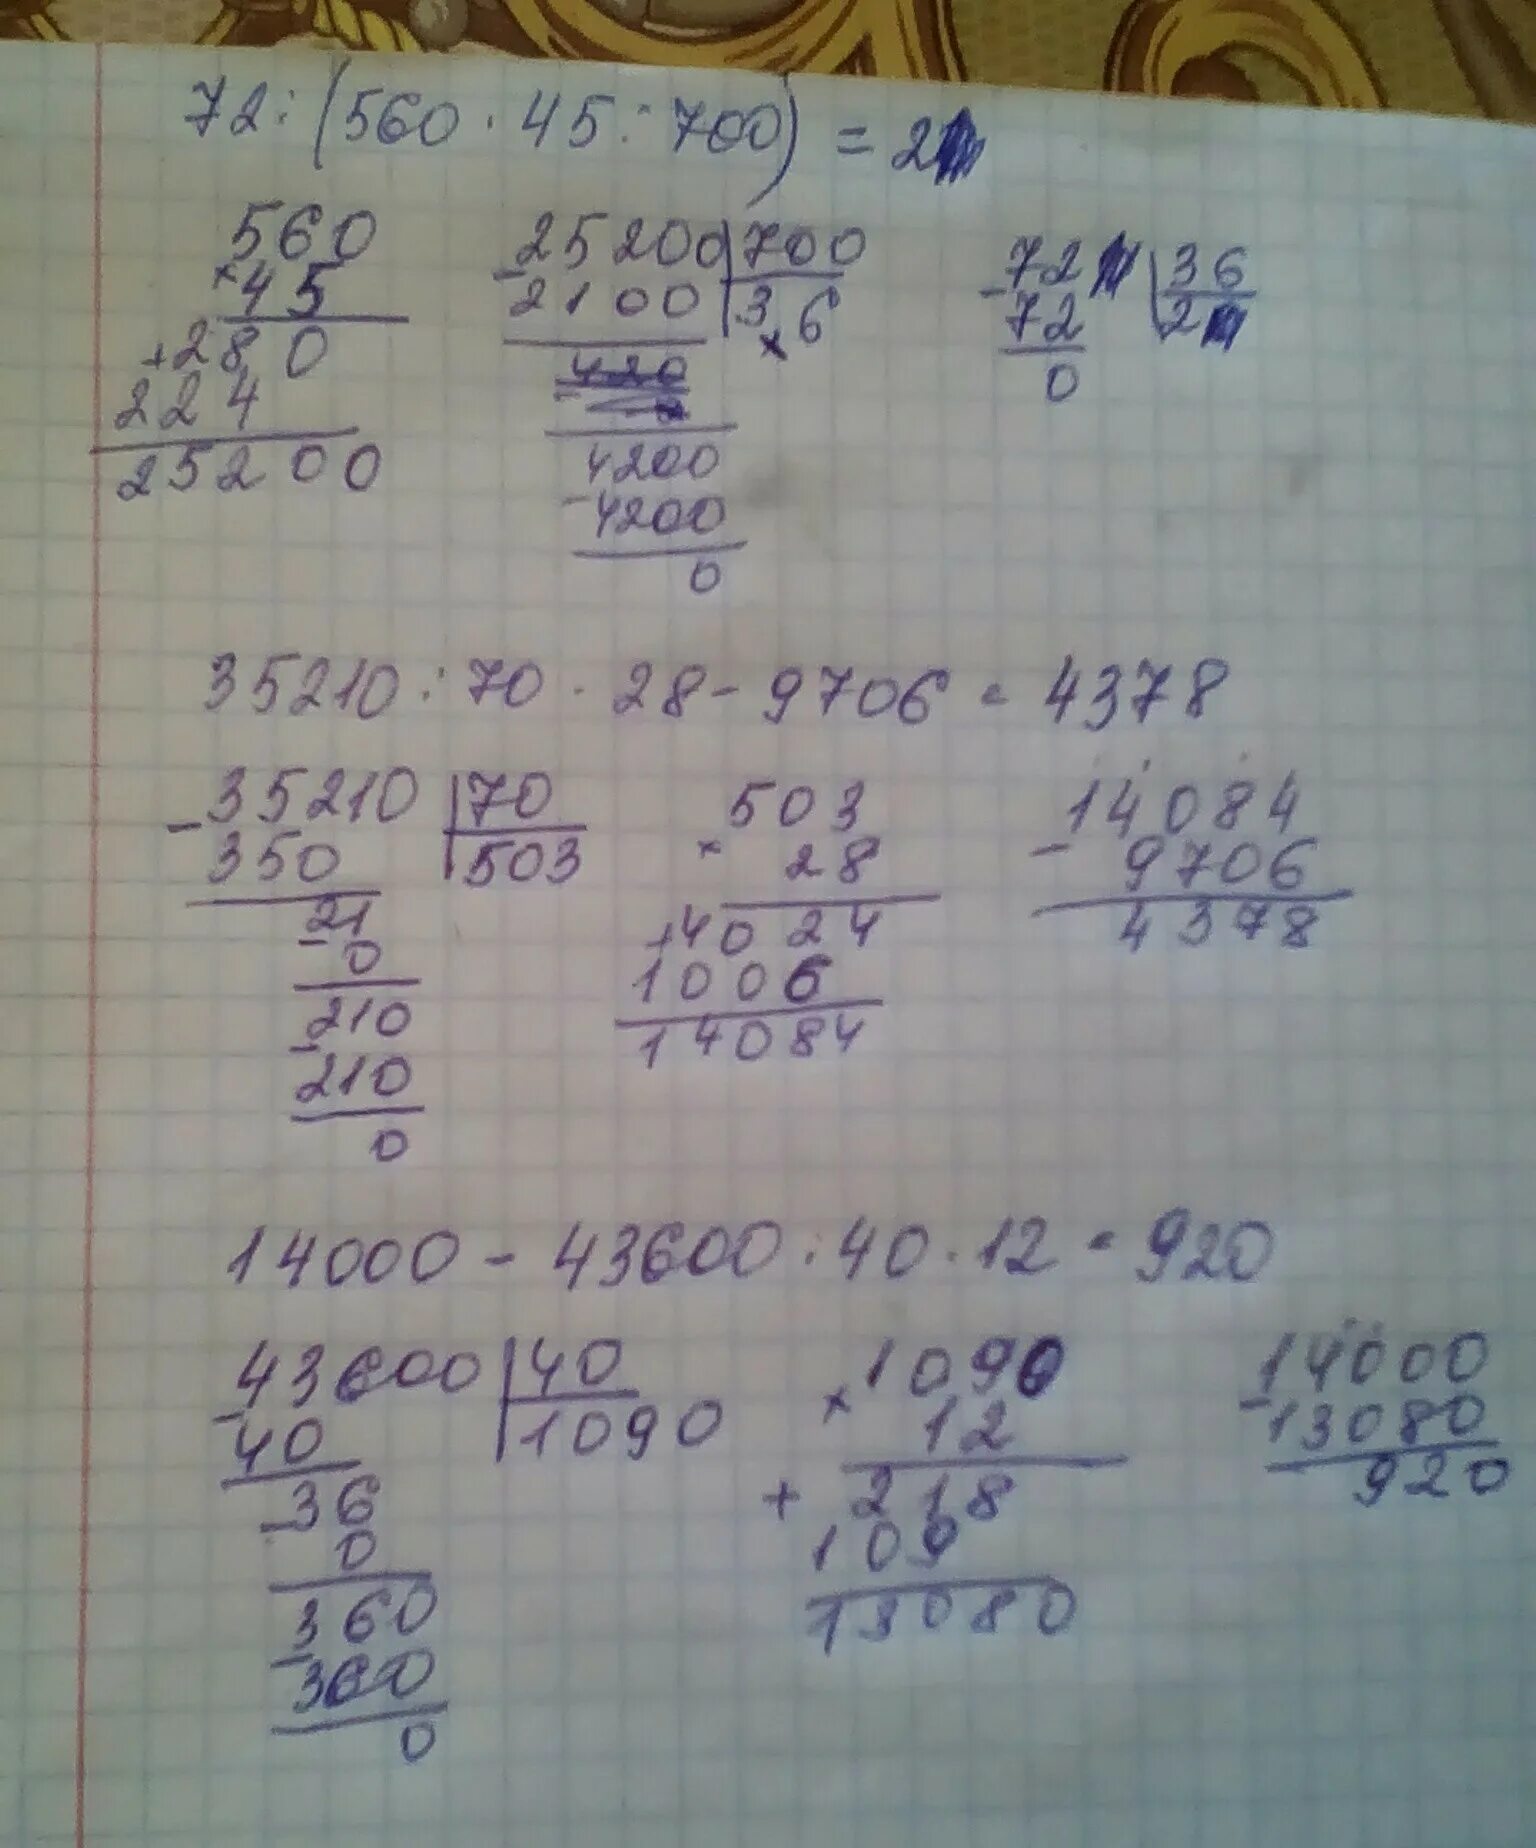 72 : (560 · 45 : 700) = 2
560
× 45
+ 280
224
25200
- 25200 | 700
2100 | 36
4200
- 4200
0
- 72 | 36
72 | 2
0
35210 : 70 · 28 - 9706 = 4378
- 35210 | 70
350 | 503
- 21
0
- 210
210
0
503
× 28
+ 4024
1006
14084
14084
- 9706
4378
14000 - 43600 : 40 · 12 = 920
- 43600 | 40
40 | 1090
- 36
0
- 360
360
0
1090
× 12
+ 218
109
13080
- 14000
13080
920